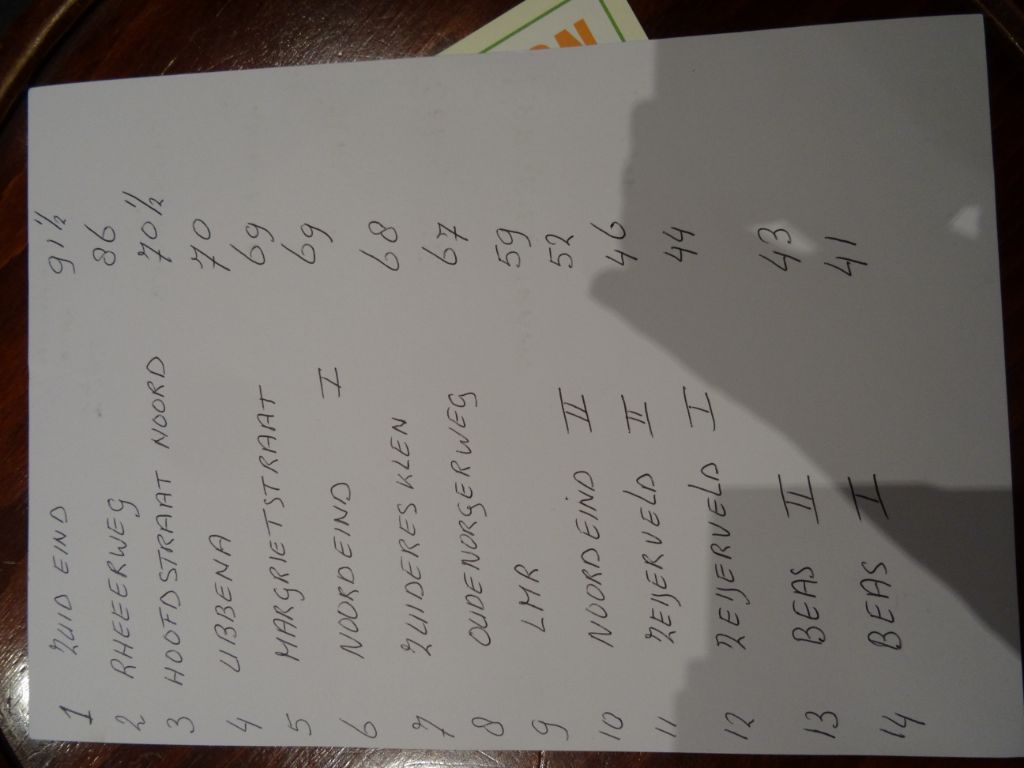 1 ZUID EIND 91½
2 RHEEERWEG 86
3 HOOFDSTRAAT NOORD 70½
4 UBBENA 70
5 MARGRIETSTRAAT 69
6 NOORDEIND I 69
7 ZUIDERES KLEN 68
8 OUDENORGERWEG 67
9 LMR 59
10 NOORDEIND II 52
11 ZEIJERVELD II 46
12 ZEIJERVELD I 44
13 BEAS II 43
14 BEAS I 41